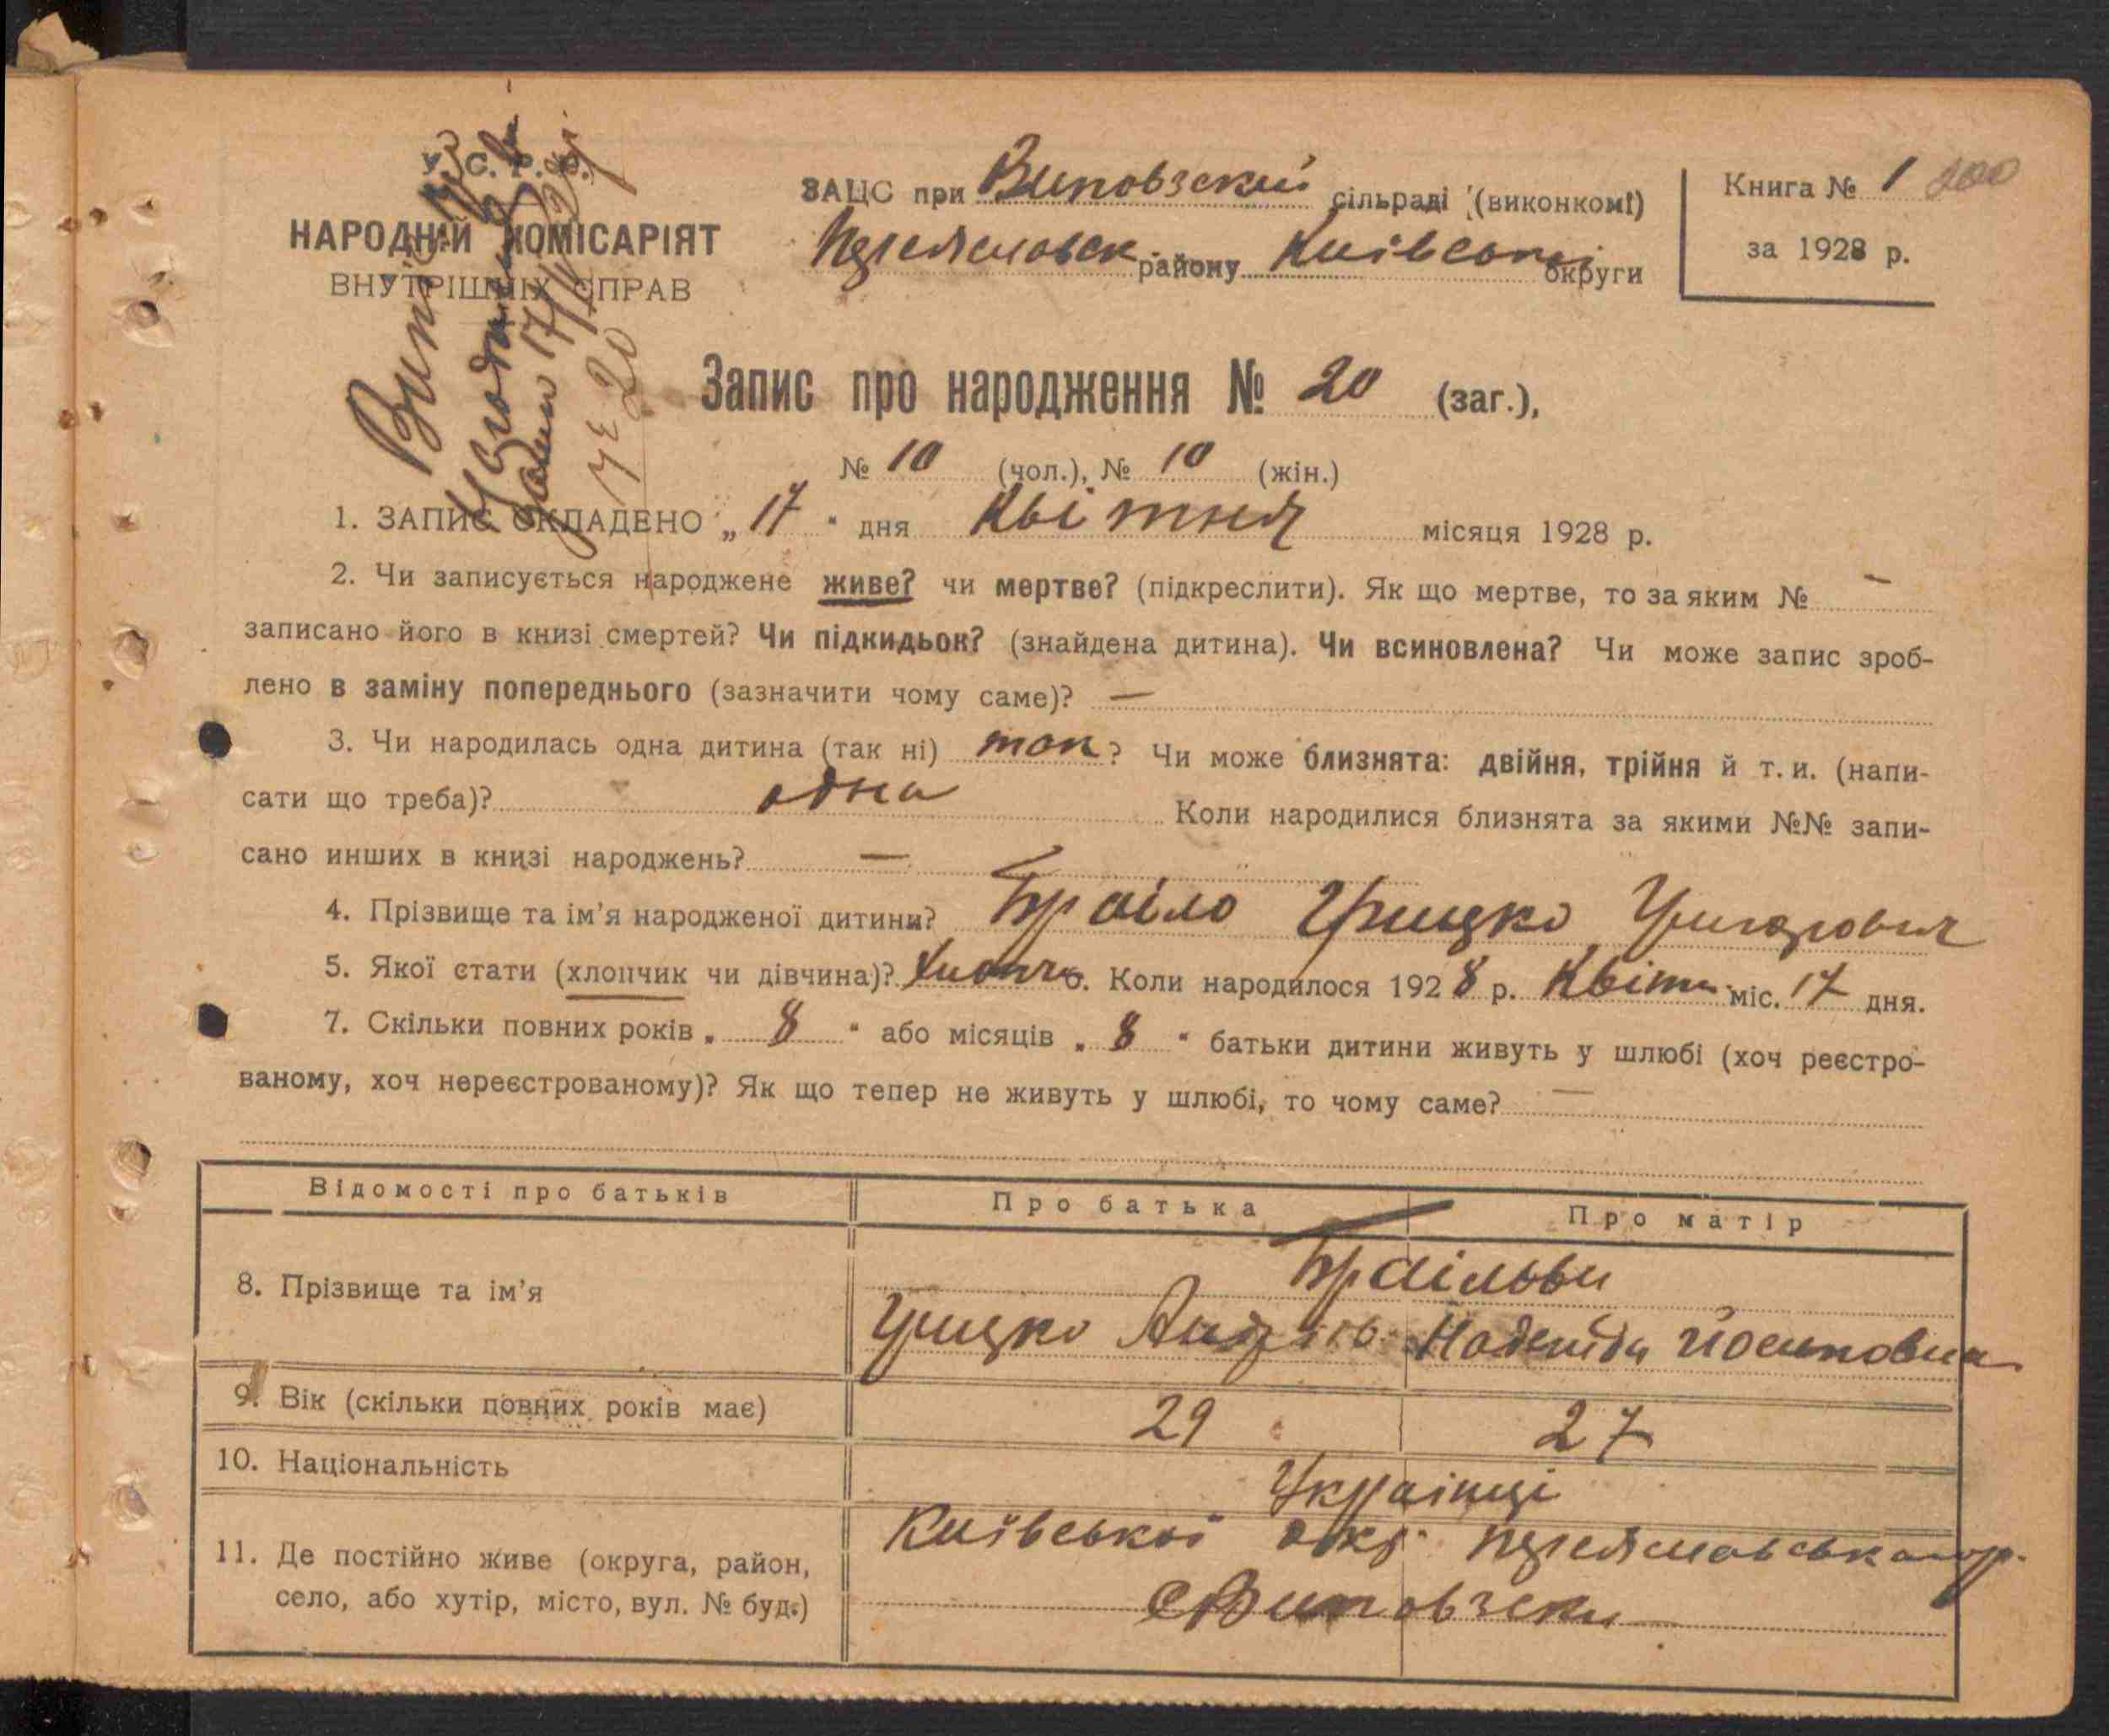 У. С. Р. Р.
НАРОДНІЙ КОМІСАРІЯТ
ВНУТРІШНІХ СПРАВ
ЗАЦС при Виповзский сільраді (виконкомі)
Переяславськ. району Київської округи
Книга № 1 200
за 1928 р.
17/IV 28 р
№ 20
Запис про народження № 20 (заг.),
№ 10 (чол.), № 10 (жін.)
1. ЗАПИС СКЛАДЕНО „17“ дня Квітня місяця 1928 р.
2. Чи записується народжене живе? чи мертве? (підкреслити). Як що мертве, то за яким № —
записано його в книзі смертей? Чи підкидьок? (знайдена дитина). Чи всиновлена? Чи може запис зроб-
лено в заміну попереднього (зазначити чому саме)? —
3. Чи народилась одна дитина (так ні) так ? Чи може близнята: двійня, трійня й т. и. (напи-
сати що треба)? одна Коли народилися близнята за якими №№ запи-
сано инших в книзі народжень? —
4. Прізвище та ім’я народженої дитини? Браіло Грицко Григорович
5. Якої стати (хлопчик чи дівчина)? Хлопч 6. Коли народилося 1928 р. Квітн. міс. 17 дня.
7. Скільки повних років „ 8 “ або місяців „ 8 “ батьки дитини живуть у шлюбі (хоч реєстро-
ваному, хоч нереєстрованому)? Як що тепер не живуть у шлюбі, то чому саме? —
Відомості про батьків Про батька Про матір
Браільви
8. Прізвище та ім’я
Грицко Надежда Йосиповна
9. Вік (скільки повних років має) 29 27
10. Національність Українці
11. Де постійно живе (округа, район, Київської окр. Переяславського р.
село, або хутір, місто, вул. № буд.) с Виповзки